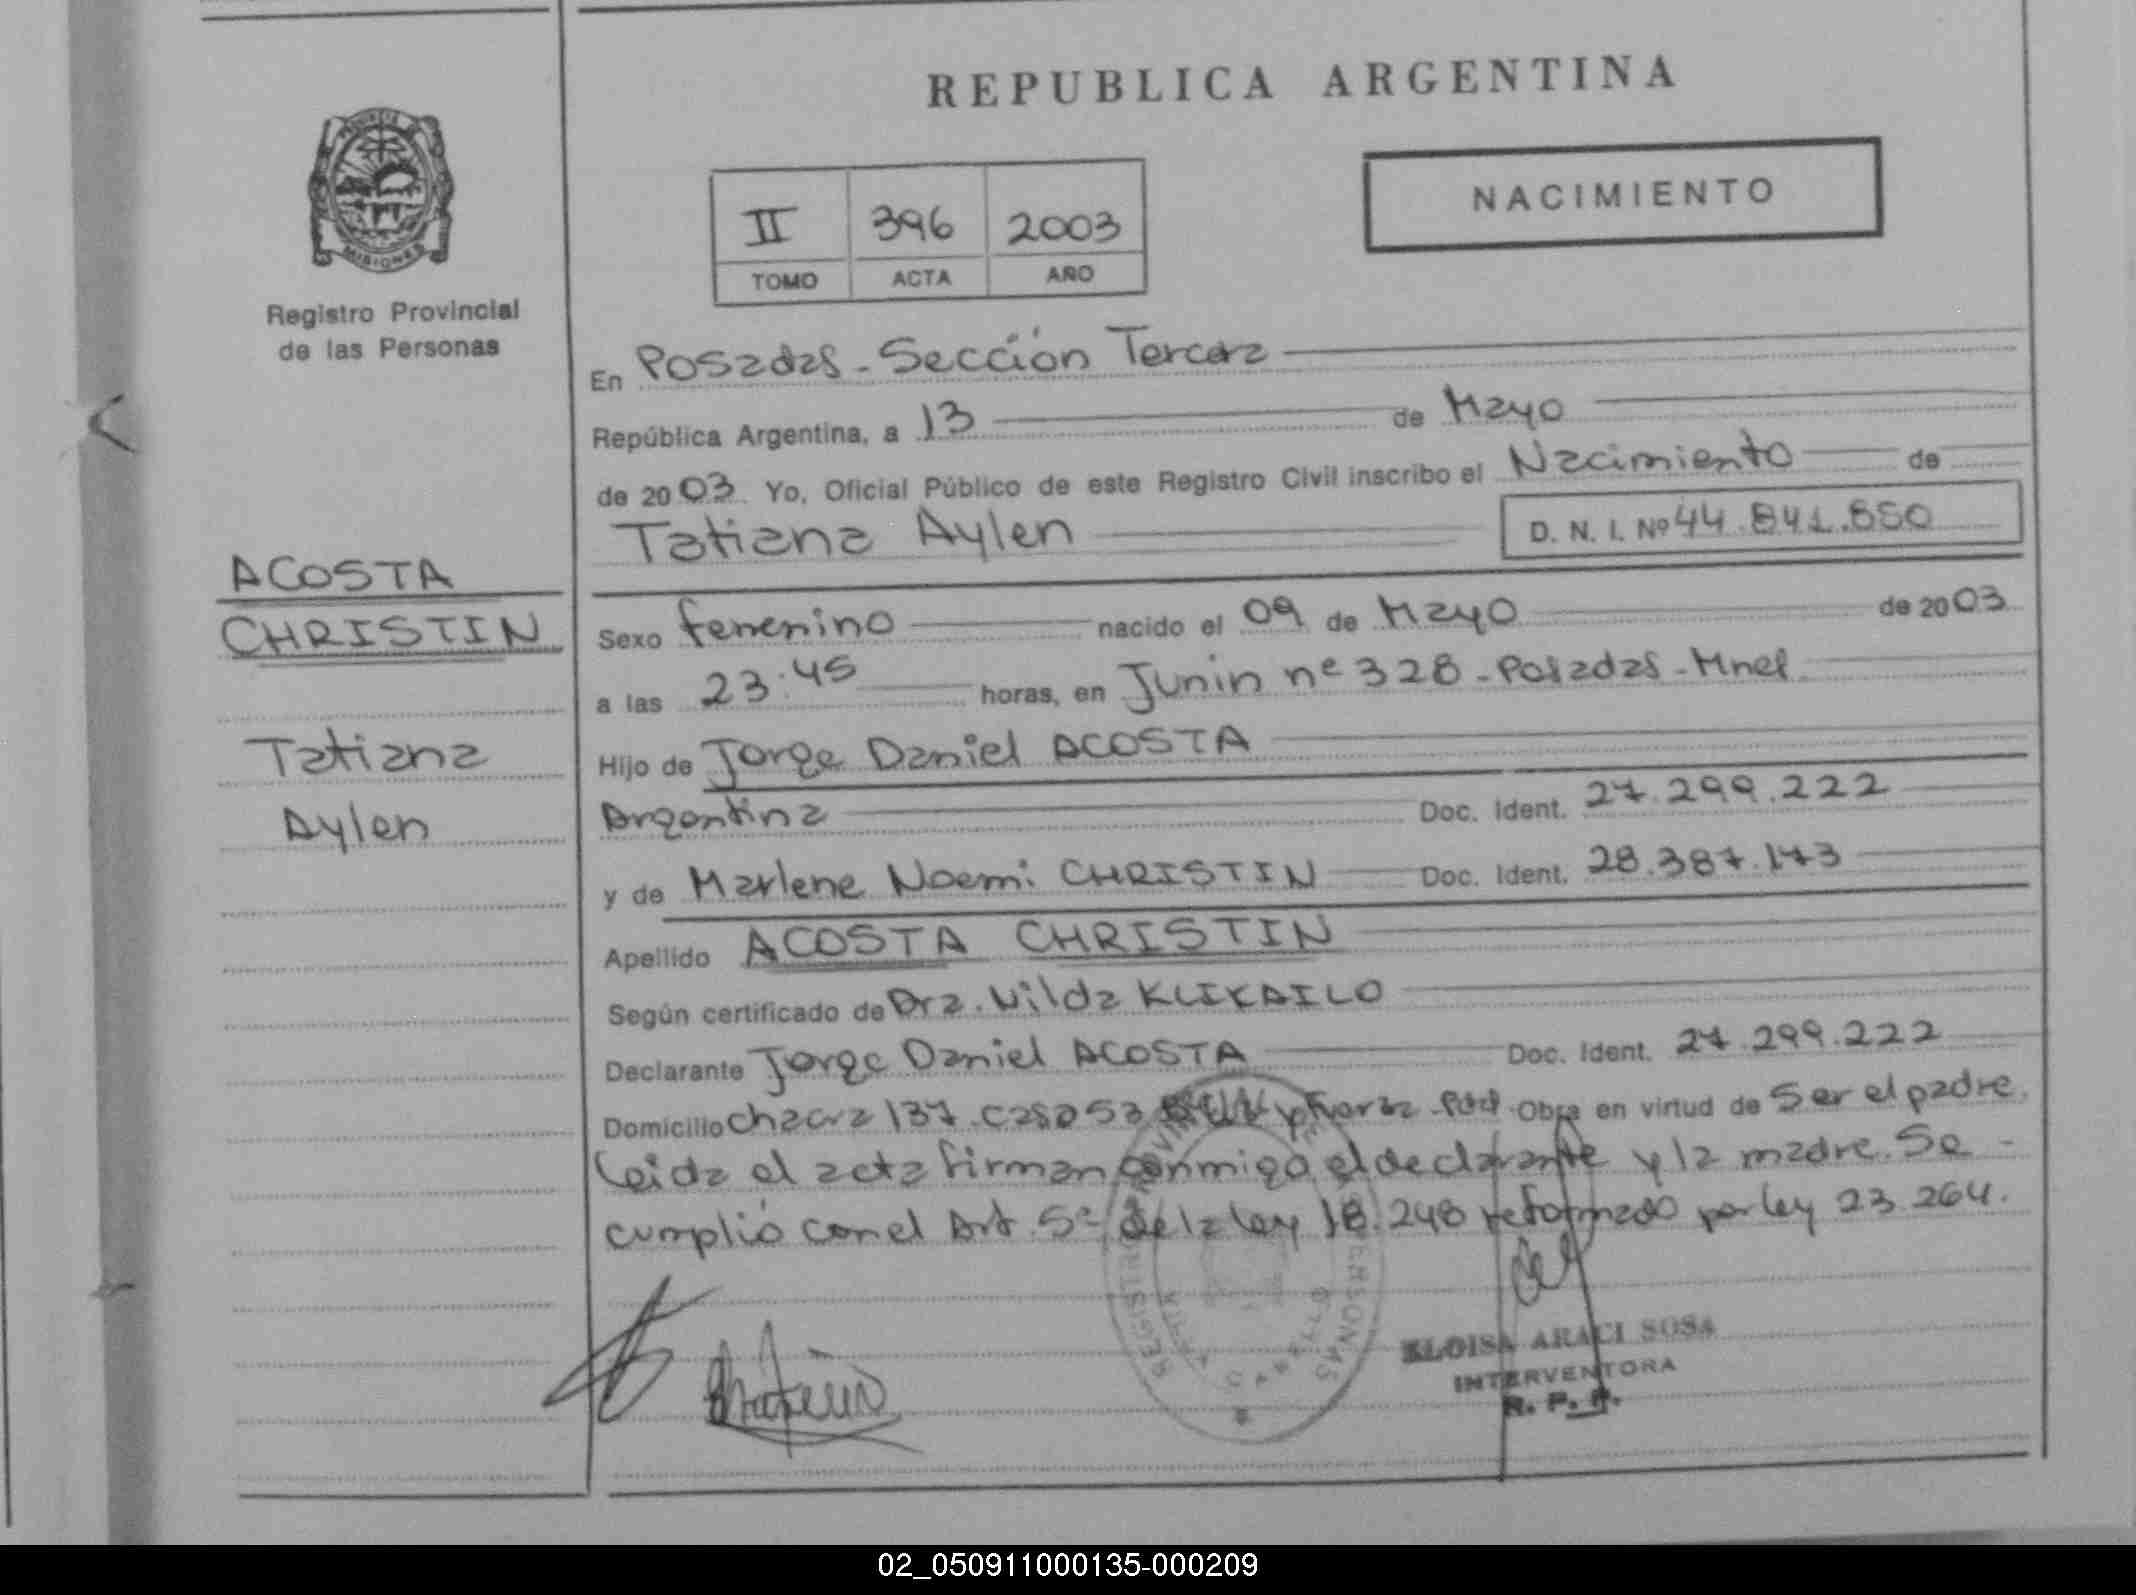 REPUBLICA ARGENTINA
NACIMIENTO
II 396 2003
TOMO ACTA AÑO
PROVINCIA DE
MISIONES
Registro Provincial
de las Personas
En Posadas - Sección Tercera
República Argentina, a 13 de Mayo
de 2003 Yo, Oficial Público de este Registro Civil inscribo el Nacimiento de
Tatiana Aylen D. N. I. Nº 44.841.550
ACOSTA
CHRISTIN
Tatiana
Aylen
Sexo femenino nacido el 09 de Mayo de 2003
a las 23:45 horas, en Junin nº 328 - Posadas - Mnes
Hijo de Jorge Daniel ACOSTA
Argentina Doc. Ident. 27.299.222
y de Marlene Noemi CHRISTIN Doc. Ident. 28.387.173
Apellido ACOSTA CHRISTIN
Según certificado de Dra. Nilda KLIKAILO
Declarante Jorge Daniel ACOSTA Doc. Ident. 27.299.222
Domicilio chacra 137 - casa 53 Pdas. Obra en virtud de Ser el padre.
Leida el acta firman conmigo el declarante y la madre. Se
cumplió con el Art. 5º de la ley 18.248 reformado por ley 23.264.
ELOISA ARACI SOSA
INTERVENTORA
R. P. P.
02_050911000135-000209